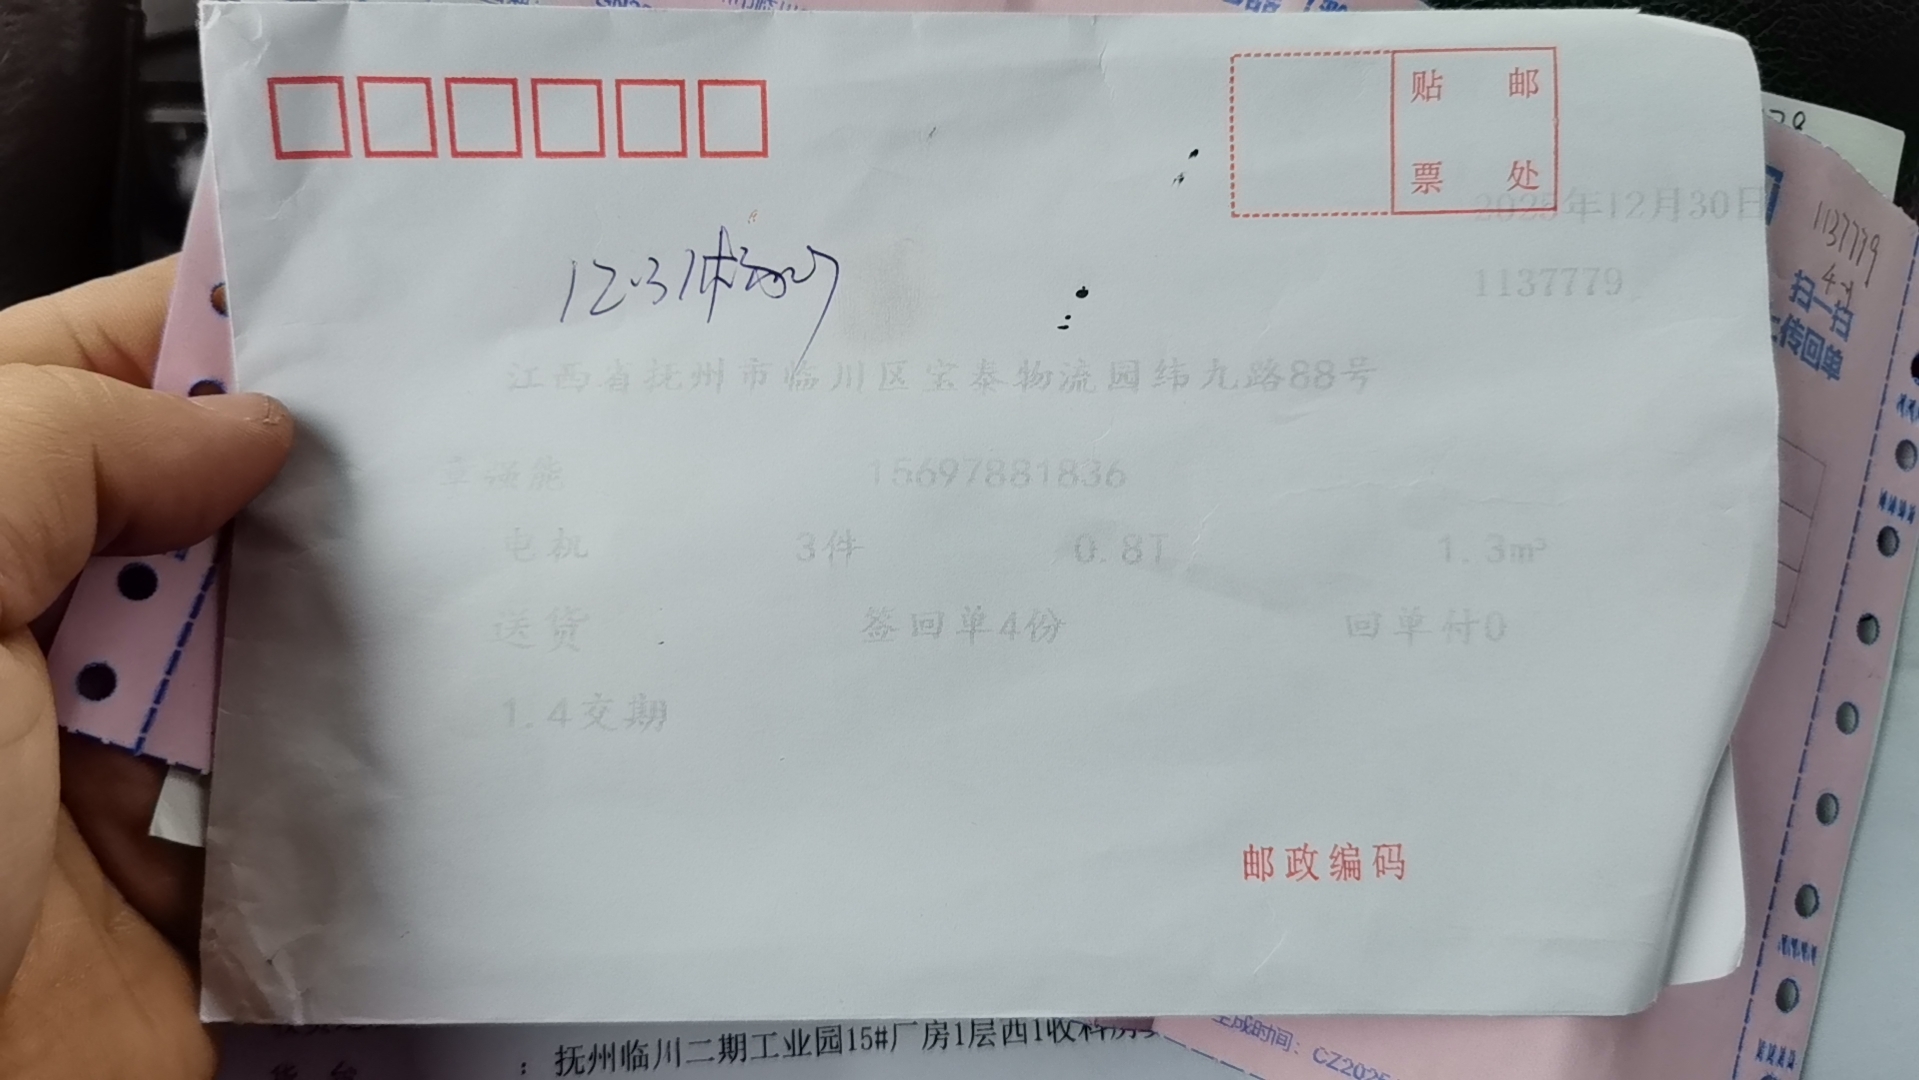 贴 邮
票 处
2025年12月30日
1137779
12.31
江西省抚州市临川区宝泰物流园纬九路88号
章强能 15697881836
电机 3件 0.8T 1.3m³
送货 签回单4份 回单付0
1.4交期
邮政编码
1137779
扫一扫
上传回单
抚州临川二期工业园15#厂房1层西1收料房
生成时间: CZ2025